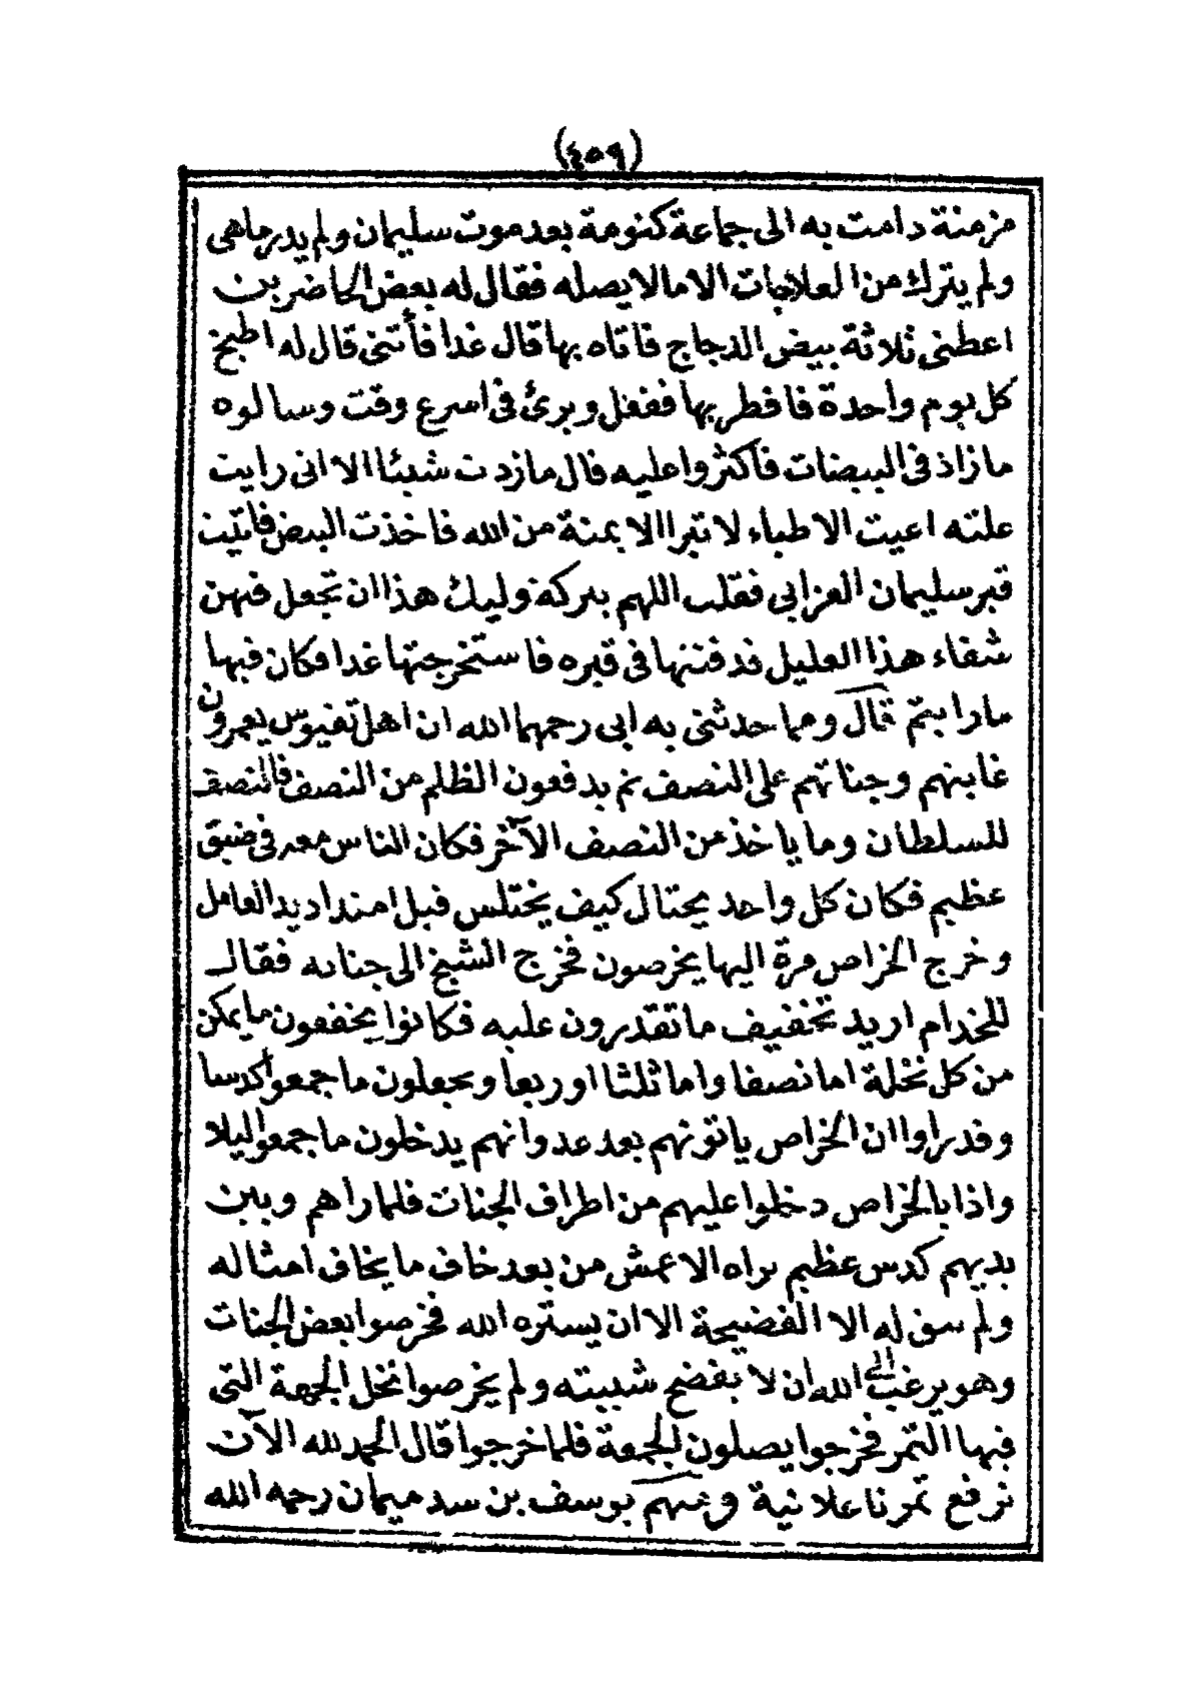 (٤٥٩)
مزمنة دامت به الى جماعة كنومة بعد موت سليمان ولم يدر ماهى
ولم يترك من العلاجات الا مالا يصله فقال له بعض الحاضرين
اعطنى ثلاثة بيض الدجاج فاتاه بها قال غدا فأتنى قال له اطبخ
كل يوم واحدة فافطر بها ففعل وبرئ فى اسرع وقت وسالوه
مازاد فى البيضات فأكثروا عليه قال مازدت شيئا الا انى رايت
علته اعيت الاطباء لا تبرا الا بمنة من الله فاخذت البيض فاتيت
قبر سليمان العزابي فقلت اللهم ببركة وليك هذا ان تجعل فيهن
شفاء هذا العليل فدفنتها فى قبره فاستخرجتها غدا فكان فيها
مارايتم قال ومما حدثنى به ابى رحمهما الله ان اهل تفيوس يعمرون
غابتهم وجناتهم على النصف ثم يدفعون الظلم من النصف فالنصف
للسلطان وما ياخذ من النصف الآخر فكان الناس معه فى ضيق
عظيم فكان كل واحد يحتال كيف يختلس قبل امتداد يد العامل
وخرج الخراص مرة اليها يخرصون فخرج الشيخ الى جنانه فقال
للخدام اريد تخفيف ما تقدرون عليه فكانوا يخففون ما يمكن
من كل نخلة اما نصفا واما ثلثا او ربعا ويجعلون ما جمعوا كدسا
وقد راوا ان الخراص ياتونهم بعد غد وانهم يدخلون ما جمعوا ليلا
واذا بالخراص دخلوا عليهم من اطراف الجنات فلما راهم وبين
يديهم كدس عظيم يراه الاعمش من بعد خاف ما يخاف امثاله
ولم يبق له الا الفضيحة الا ان يستره الله فخرصوا بعض الجنات
وهو يرغب الى الله ان لا يفضح شيبته ولم يخرصوا نخل الجهة التى
فيها التمر فخرجوا يصلون الجمعة فلما خرجوا قال الحمد لله الآن
نرفع تمرنا علانية ومنهم يوسف بن سدميمان رحمه الله